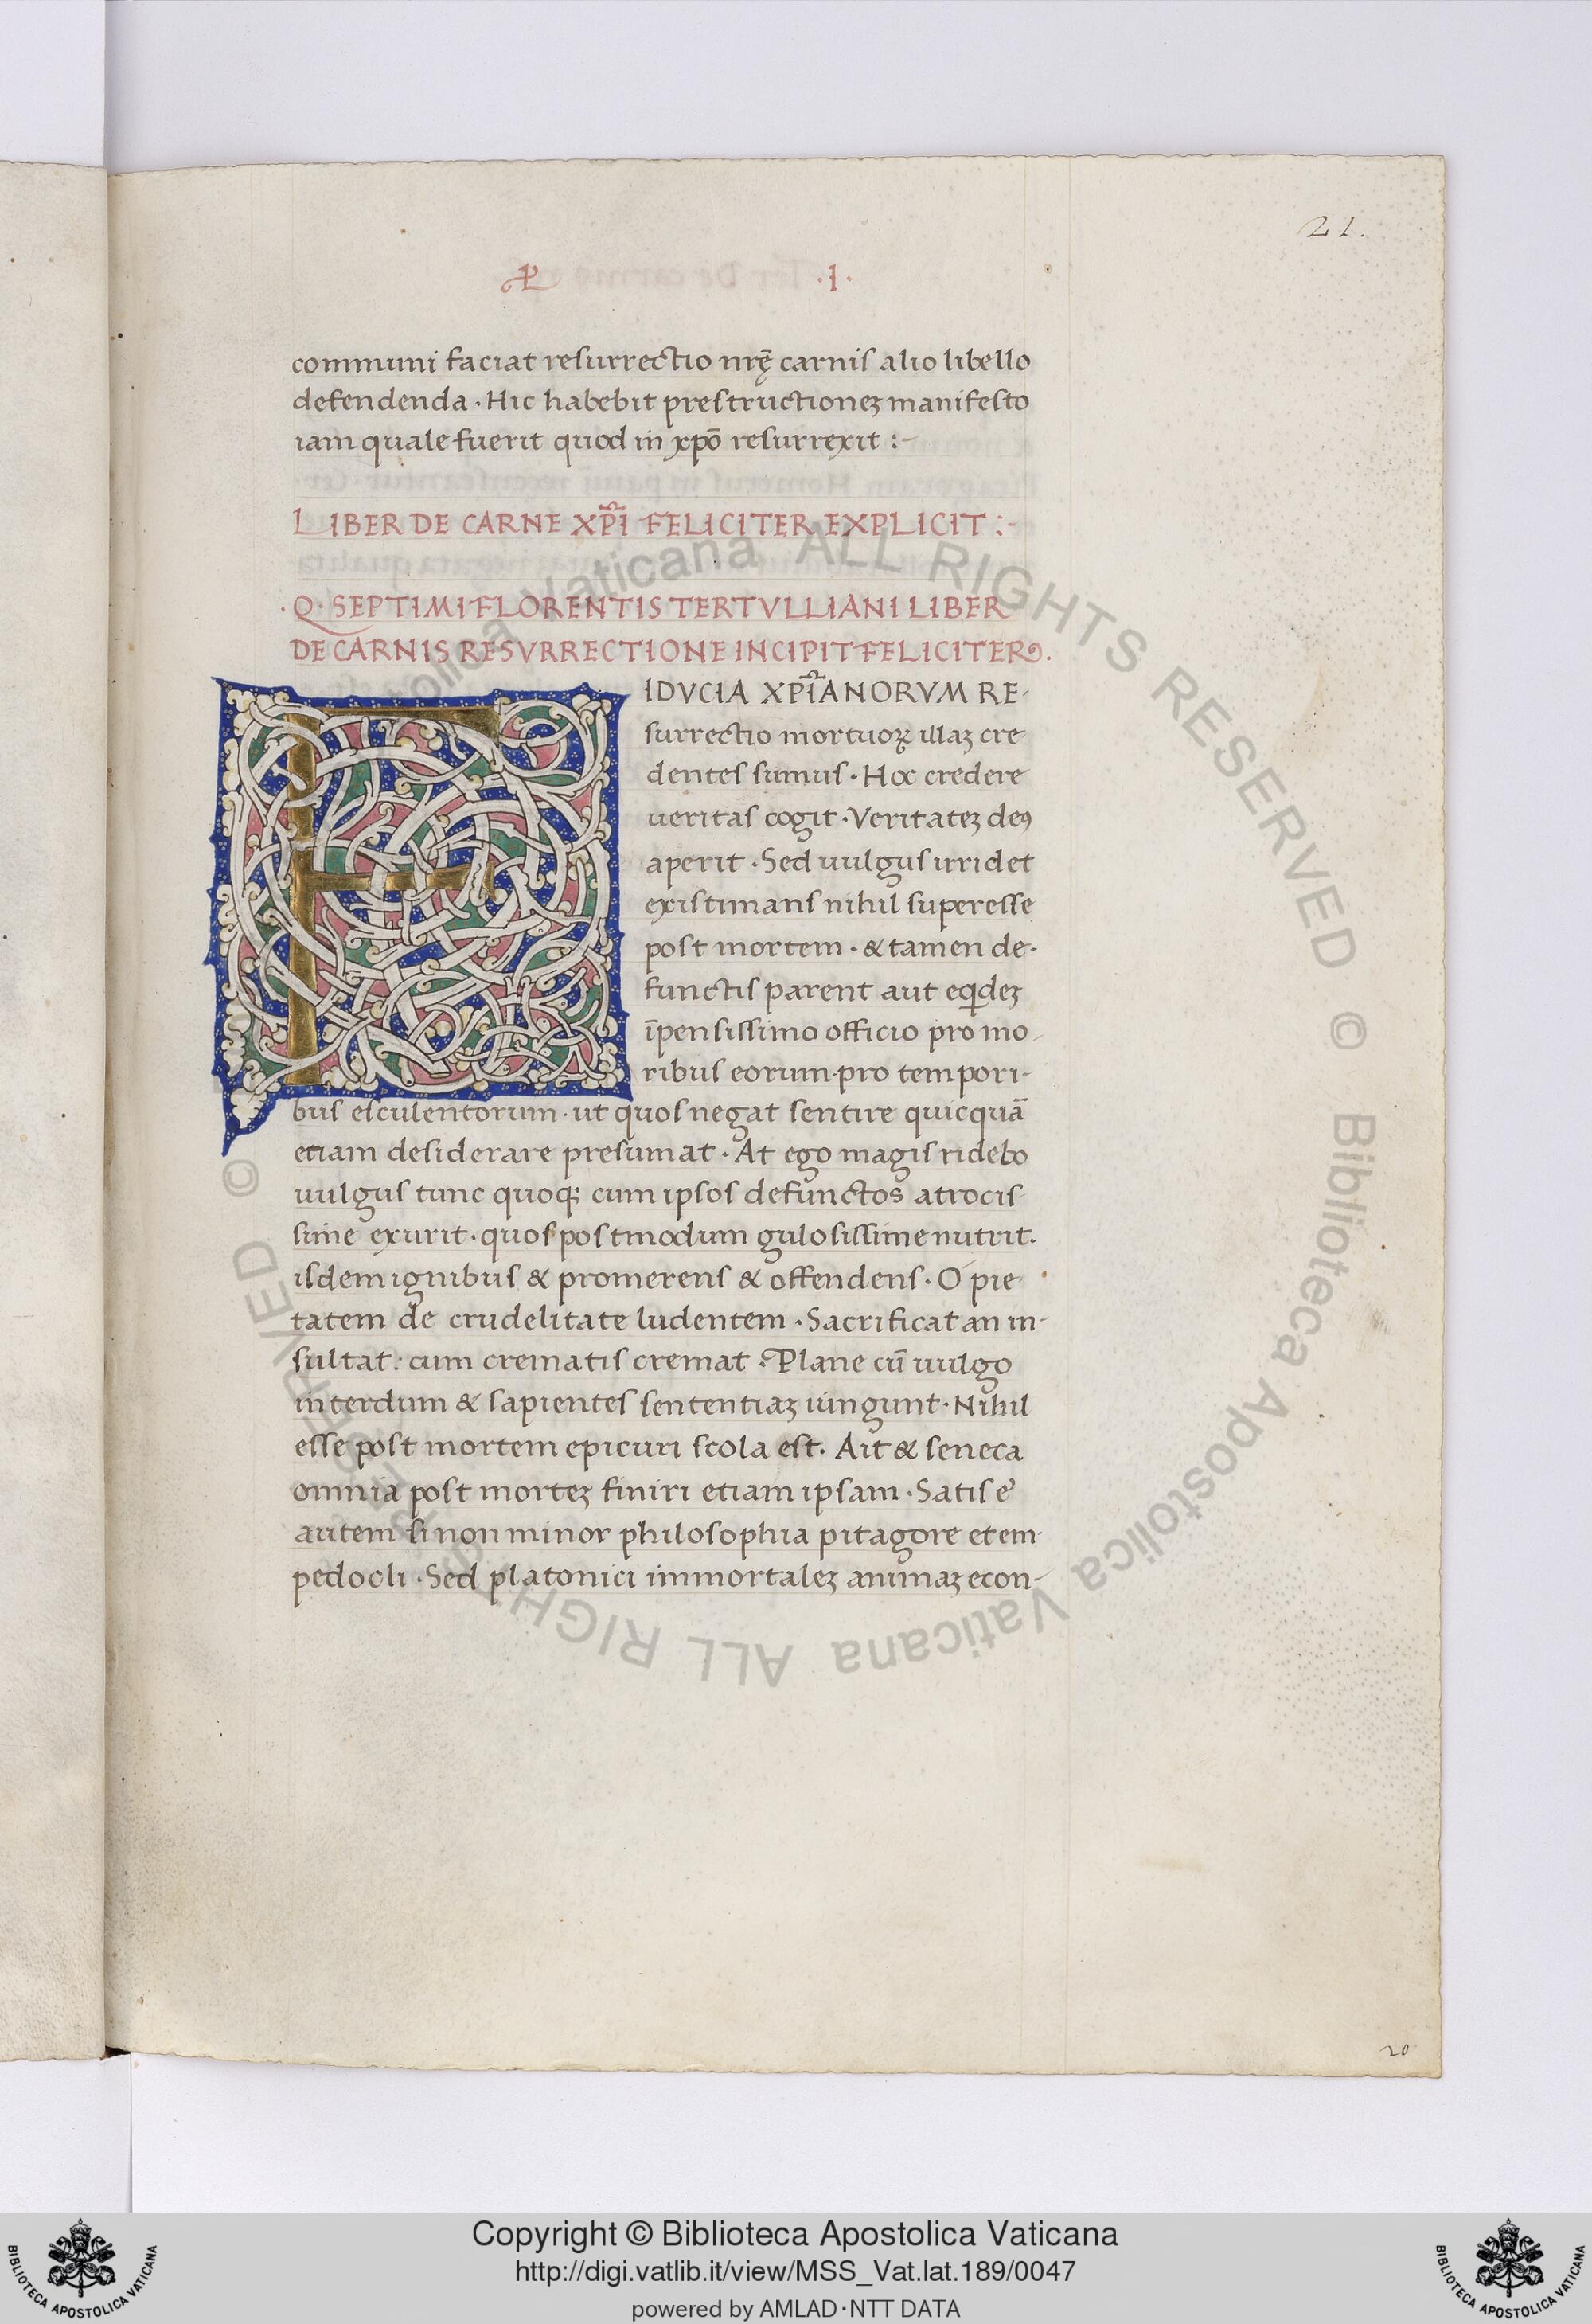 21.
.I.
communi faciat resurrectio nrę̄ carnis alio libello
defendenda · Hic habebit prestructionez manifesto
iam quale fuerit quod in xpō resurrexit :-
LIBER DE CARNE XPĪ FELICITER EXPLICIT :-
·Q· SEPTIMI FLORENTIS TERTVLLIANI LIBER
DE CARNIS RESVRRECTIONE INCIPIT FELICITER.
FIDVCIA XPĪANORVM RE-
surrectio mortuoꝝ illaz cre
dentes sumus · Hoc credere
ueritas cogit · Veritatez deꝰ
aperit · Sed uulgus irridet
existimans nihil superesse
post mortem · & tamen de-
functis parent aut eqidez
īpensissimo officio pro mo-
ribus eorum · pro tempori-
bus esculentorum · ut quos negat sentire quicquā
etiam desiderare presumat · At ego magis ridebo
uulgus tunc quoqꝫ cum ipsos defunctos atrocis
sime exurit · quos postmodum gulosissime nutrit.
isdem ignibus & promerens & offendens · O pie
tatem de crudelitate ludentem · Sacrificat an in-
sultat: cum crematis cremat · Plane cū uulgo
interdum & sapientes sententiaz iungunt · Nihil
esse post mortem epicuri scola est. Ait & seneca
omnia post mortez finiri etiam ipsam · Satis ē
autem si non minor philosophia pitagore et em-
pedocli · Sed platonici immortalez animaz econ-
20
© Biblioteca Apostolica Vaticana ALL RIGHTS RESERVED © Biblioteca Apostolica Vaticana ALL RIGHTS RESERVED
Copyright © Biblioteca Apostolica Vaticana
http://digi.vatlib.it/view/MSS_Vat.lat.189/0047
powered by AMLAD·NTT DATA
BIBLIOTECA APOSTOLICA VATICANA
BIBLIOTECA APOSTOLICA VATICANA